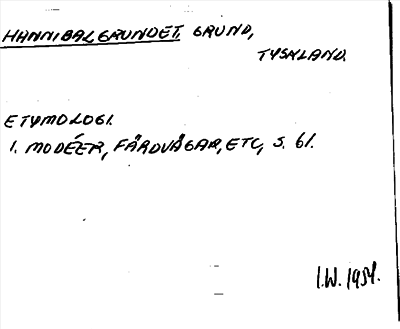 HANNIBALGRUNDET, GRUND,
TYSKLAND.
ETYMOLOGI.
1. MODÉER, FÄRDVÄGAR, ETC, S. 61.
I.W. 1954.